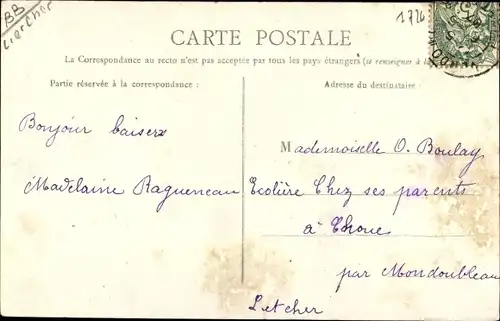 BB
LoirCher
1726
CARTE POSTALE
La Correspondance au recto n'est pas acceptée par tous les pays étrangers (se renseigner à la
Partie réservée à la correspondance :
Adresse du destinataire :
Bonjour baisers
Madelaine Ragueneau
Mademoiselle O. Boulay
Ecolière Chez ses parents
à Choue
par Mondoubleau
Let cher